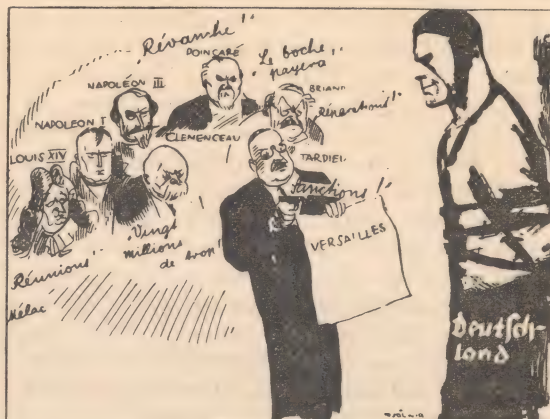 Révanche!
POINCARÉ
Le boche
payera!
NAPOLÉON III
BRIAND
Réparations!
NAPOLEON I
CLEMENCEAU
LOUIS XIV
TARDIEU
Sanctions!
VERSAILLES
Vingt
millions
de trop!
Réunions!
Mélac
Deutsch-
land